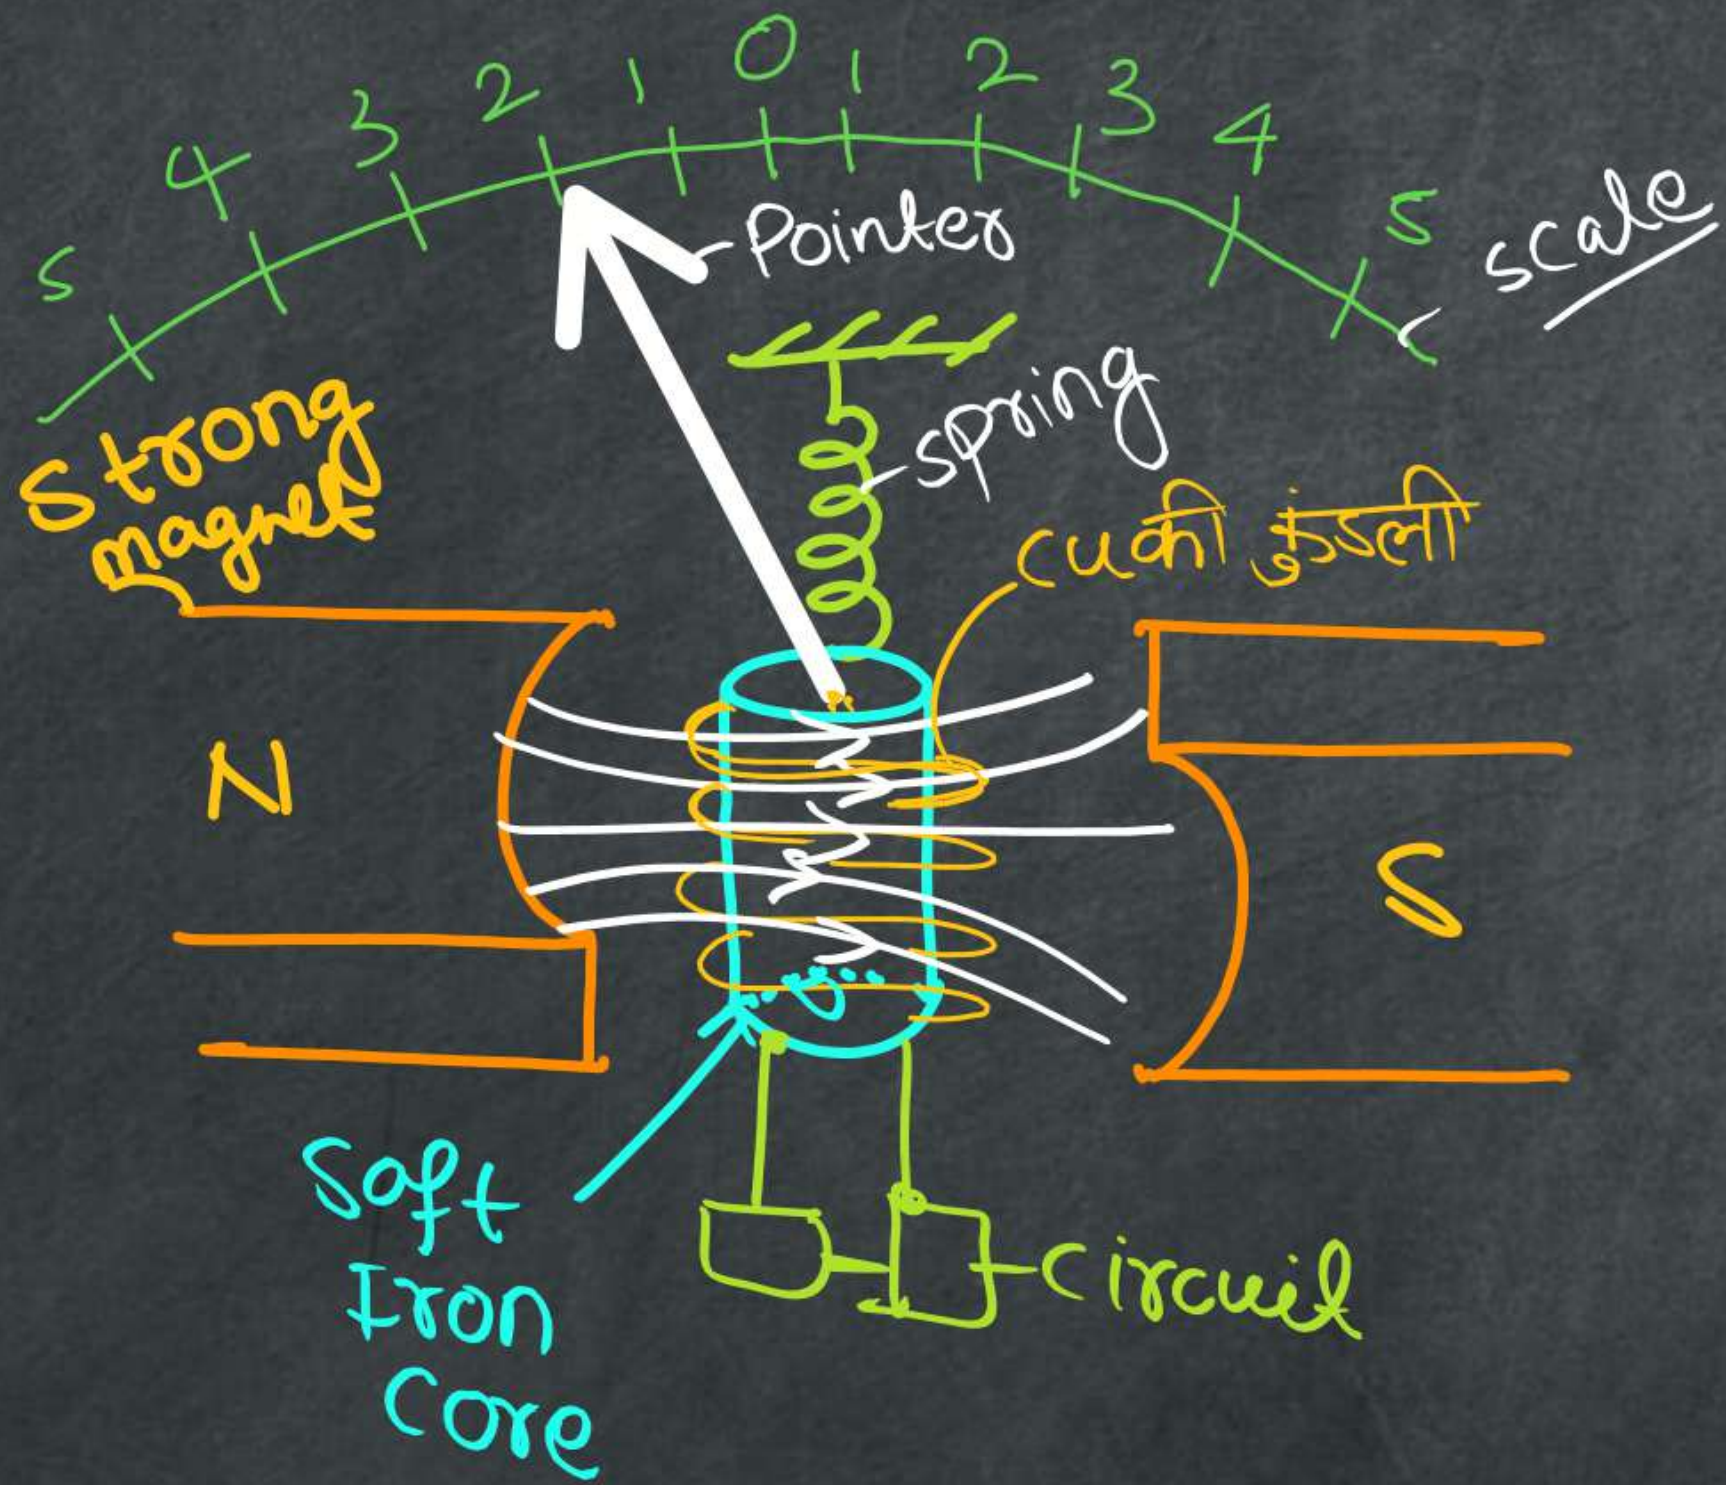 5 4 3 2 1 0 1 2 3 4 5
scale
Pointer
spring
Strong
magnet
cu की कुंडली
N
S
Soft
Iron
Core
circuit